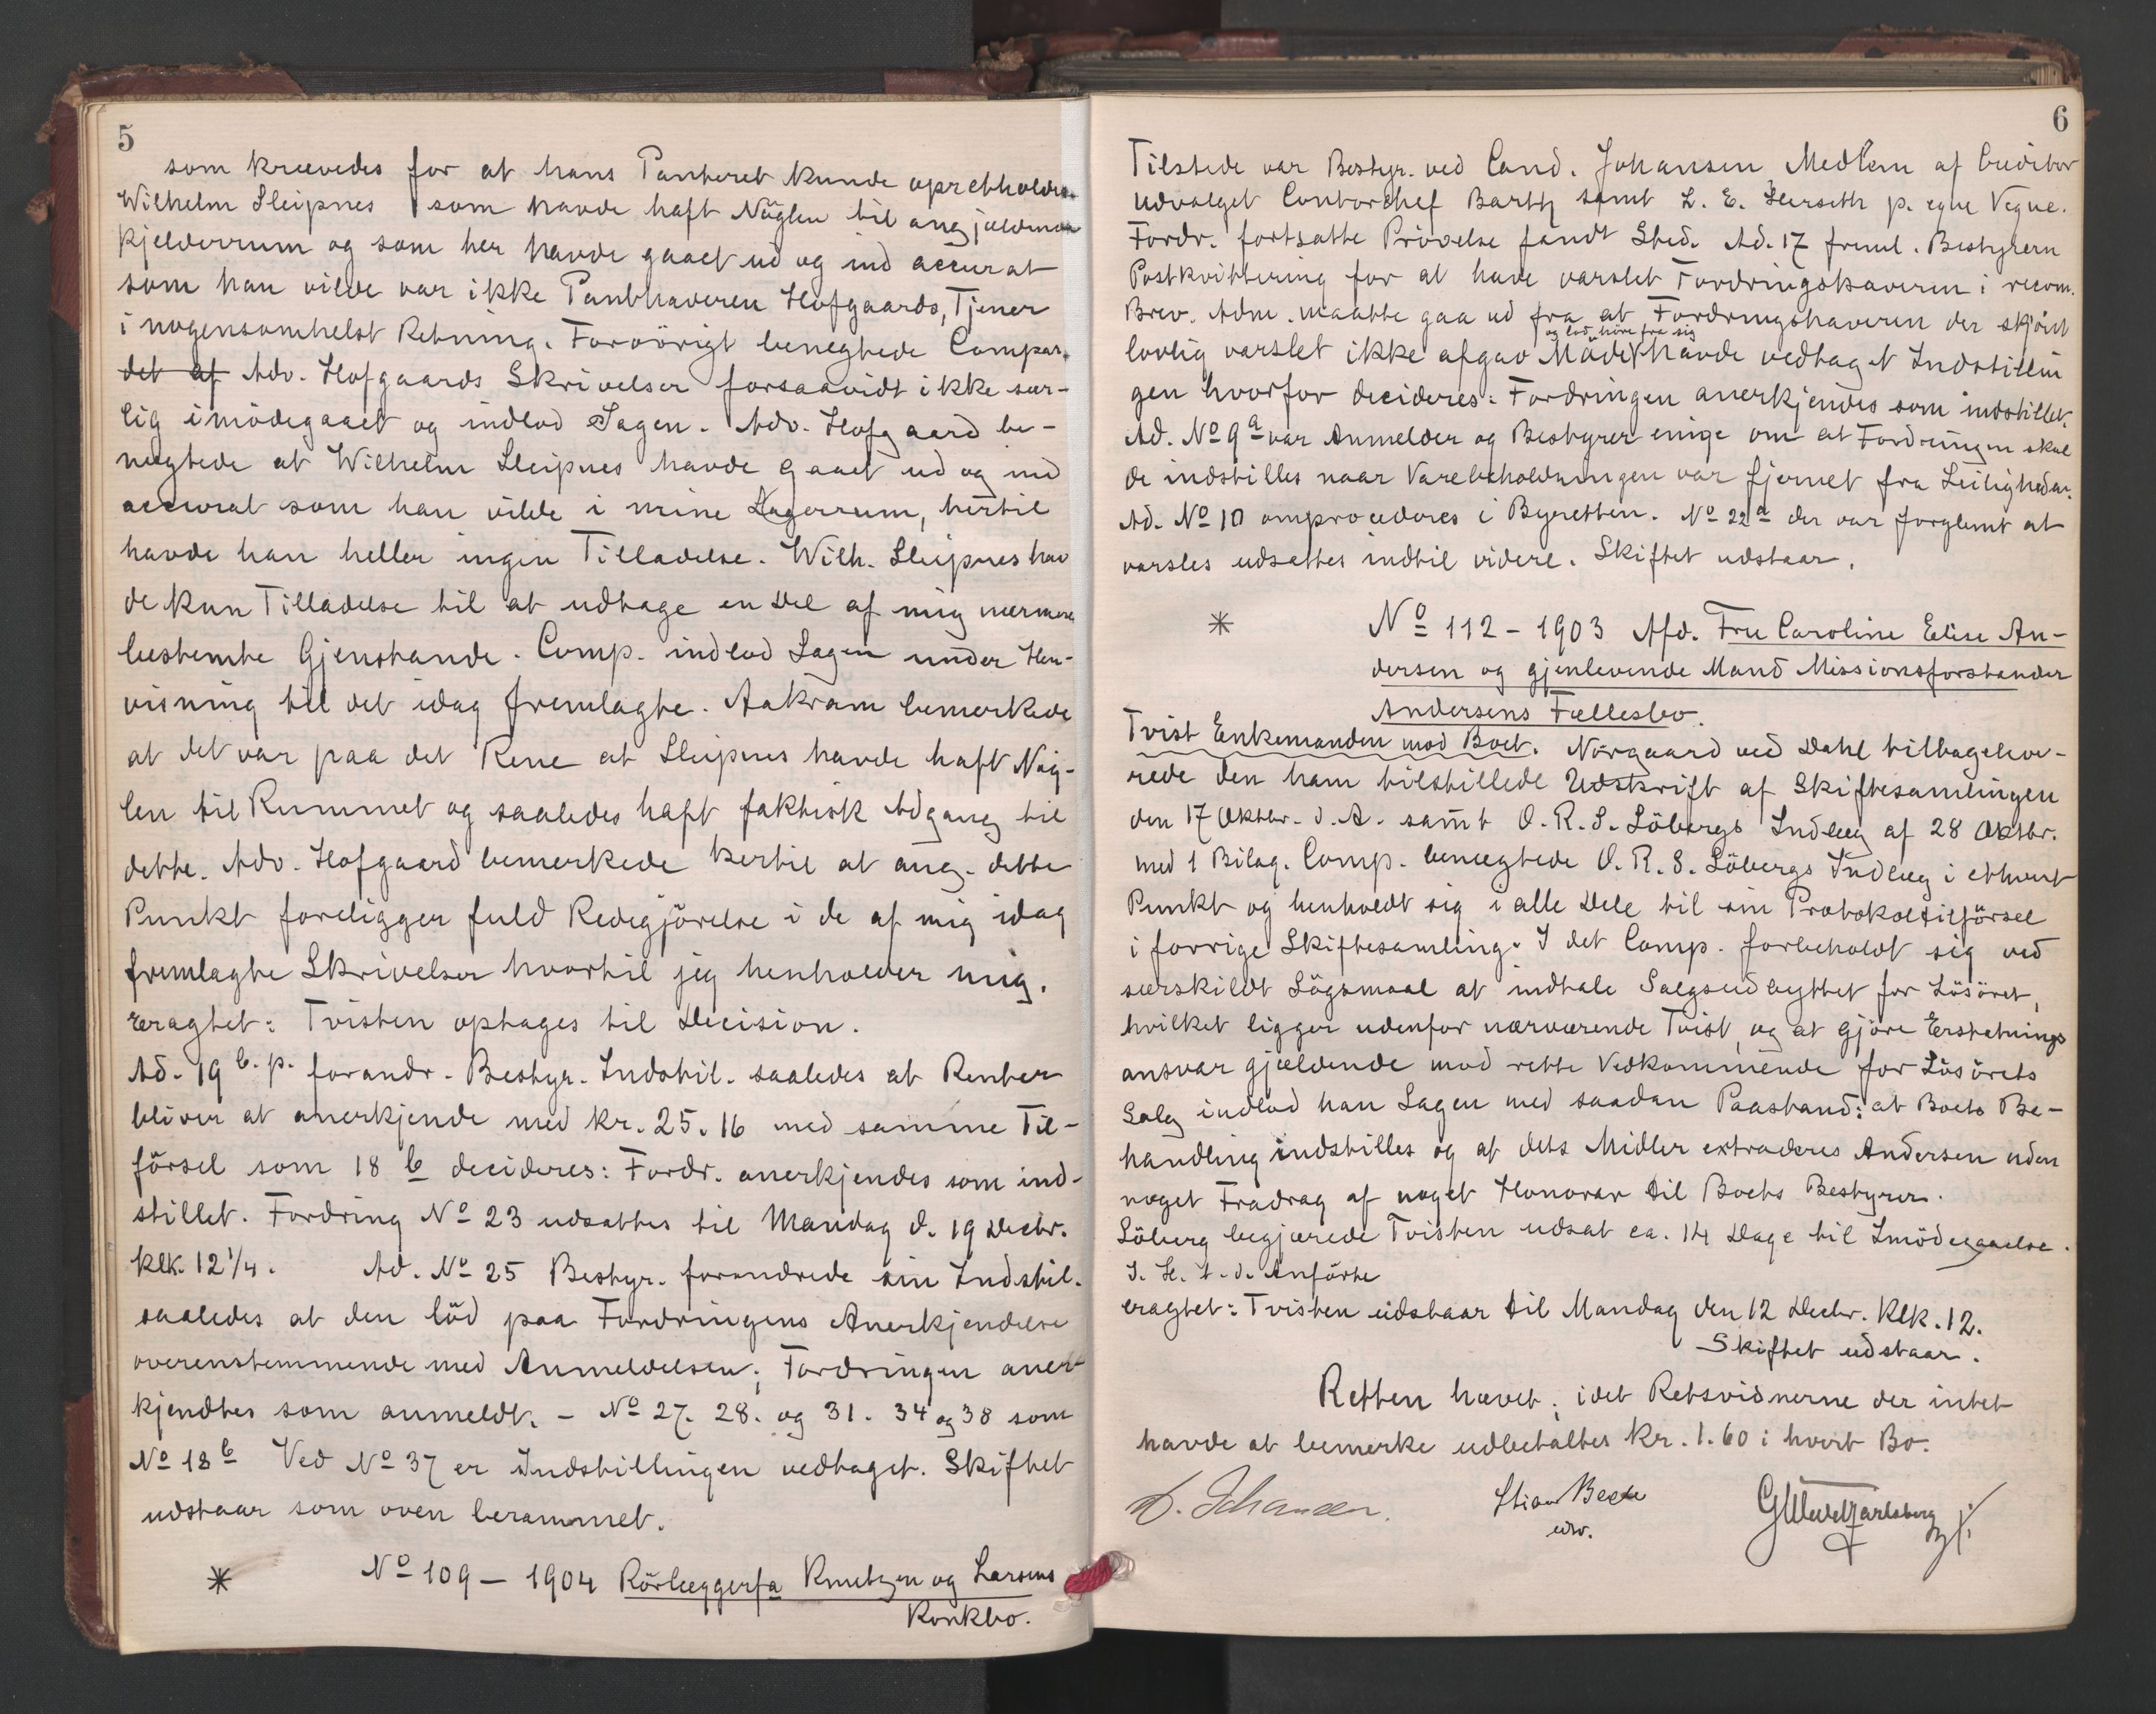 5
som krævedes for at hans Panteret kunde opretholdes.
Wilhelm Sleipnes som havde haft Nöglen til angjældende
Kjelderrum og som her havde gaaet ud og ind accurat
som han vilde var ikke Panthaveren Hofgaards, Tjener
i nogensomhelst Retning. Forövrigt benegtede Compar.
det af Adv. Hofgaards Skrivelser forsaavidt ikke sær-
lig imödegaaet og indlod Sagen. Adv. Hofgaard be-
negtede at Wilhelm Sleipnes havde gaaet ud og ind
accurat som han vilde i mine Lagerrum, hertil
havde han heller ingen Tilladelse. Wilh. Sleipnes hav
de kun Tilladelse til at udtage en Del af mig nærmere
bestemte Gjenstande. Comp. indlod Sagen under Hen-
visning til det idag fremlagte. Aakram bemerkede
at det var paa det Rene at Sleipnes havde haft Nög-
len til Rummet og saaledes haft faktisk Adgang til
dette. Adv. Hofgaard bemerkede hertil at ang. dette
Punkt foreligger fuld Redegjörelse i de af mig idag
fremlagte Skrivelser hvortil jeg henholder mig.
eragtet: Tvisten optages til Decision.
Ad. 19 b. p. forandr. Bestyr. Indstil. saaledes at Renter
bliver at anerkjende med kr. 25.16 med samme Til-
försel som 18 b decideres: Fordr. anerkjendes som ind-
stillet. Fordring No 23 udsattes til Mandag d. 19 Decbr.
klk. 12 1/4. Ad. No 25 Bestyr. forandrede sin Indstil.
saaledes at den löd paa Fordringens Anerkjendelse
overenstemmende med Anmeldelsen; Fordringen aner
kjendtes som anmeldt. – No 27. 28. og 31. 34 og 38 som
No 18 b Ved No 37 er Indstillingen vedtaget. Skiftet
udstaar som oven berammet.
* No 109 – 1904 Rörlæggerfa Knutzen og Larsens
Konkbo.
6
Tilstede var Bestyr. ved Cand. Johansen Medlem af Creditor
udvalget Contorchef Bartz samt L. E. Seierseth p. egne Vegne.
Fordr. fortsatte Prövelse fandt Sted. Ad. 17 freml. Bestyreren
Postkvittering for at have varslet Fordringshaveren i recom.
Brev. Adm. maatte gaa ud fra at Fordringshaveren der skjönt
og lod höre fra sig
lovlig varslet ikke afgav Möde havde vedtaget Indstillin
gen hvorfor decideres: Fordringen anerkjendes som indstillet.
Ad. No 9 a var Anmelder og Bestyrer enige om at Fordringen skul
de indstilles naar Varebeholdningen var fjernet fra Leiligheden.
Ad. No 10 omprocederes i Byretten. No 22 a der var forglemt at
varsles udsattes indtil videre. Skiftet udstaar.
* No 112 – 1903 Afd. Fru Caroline Elise An-
dersen og gjenlevende Mand Missionsforstander
Andersens Fællesbo.
Tvist Enkemanden mod Boet. Nörgaard ved Dahl tilbageleve-
rede den ham tilstillede Udskrift af Skiftesamlingen
den 17 Oktbr. d. A. samt O. R. S. Löbergs Indlæg af 28 Oktbr.
med 1 Bilag. Comp. benægtede O. R. S. Löbergs Indlæg i ethvert
Punkt og henholdt sig i alle Dele til sin Protokoltilförsel
i forrige Skiftesamling. I det Comp. forbeholdt sig ved
særskildt Sögsmaal at indtale Salgsudbyttet for Lösöret,
hvilket ligger udenfor nærværende Tvist, og at gjöre Erstatnings
ansvar gjældende mod rette Vedkommende for Lösörets
Salg indlod han Sagen med saadan Paastand: at Boets Be-
handling indstilles og at dets Midler extraderes Andersen uden
noget Fradrag af noget Honorar til Boets Bestyrer.
Löberg begjærede Tvisten udsat ca. 14 Dage til Imödegaaelse.
I. H. t. d. Anförte
eragtet: Tvisten udstaar til Mandag den 12 Decbr. Klk. 12.
Skiftet udstaar.
Retten hævet; idet Retsvidnerne der intet
havde at bemerke udbetaltes Kr. 1.60 i hvert Bo.
Johansen.